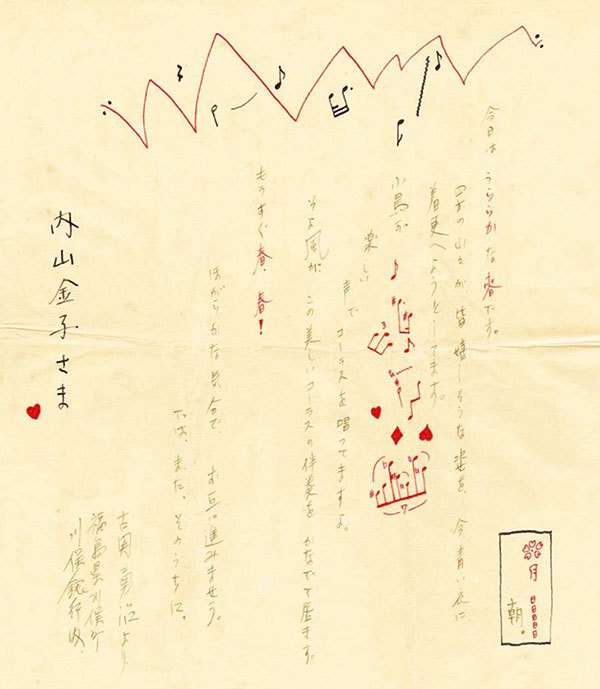 月
日日日日日
朝。
今日は うららかな春です。
四方の山々が 皆 嬉しそうな姿を、今青い衣に
着更へようとしてます。
小鳥が
楽しい
声で コーラスを唱ってますよ。
そよ風が この美しいコーラスの伴奏を かなでて居ます。
もうすぐ春、春!
ほがらかな気分で、お互に進みませう。
では、また、そのうちに。
古関勇治より
福島県川俣町
川俣銀行内、
内山金子さま